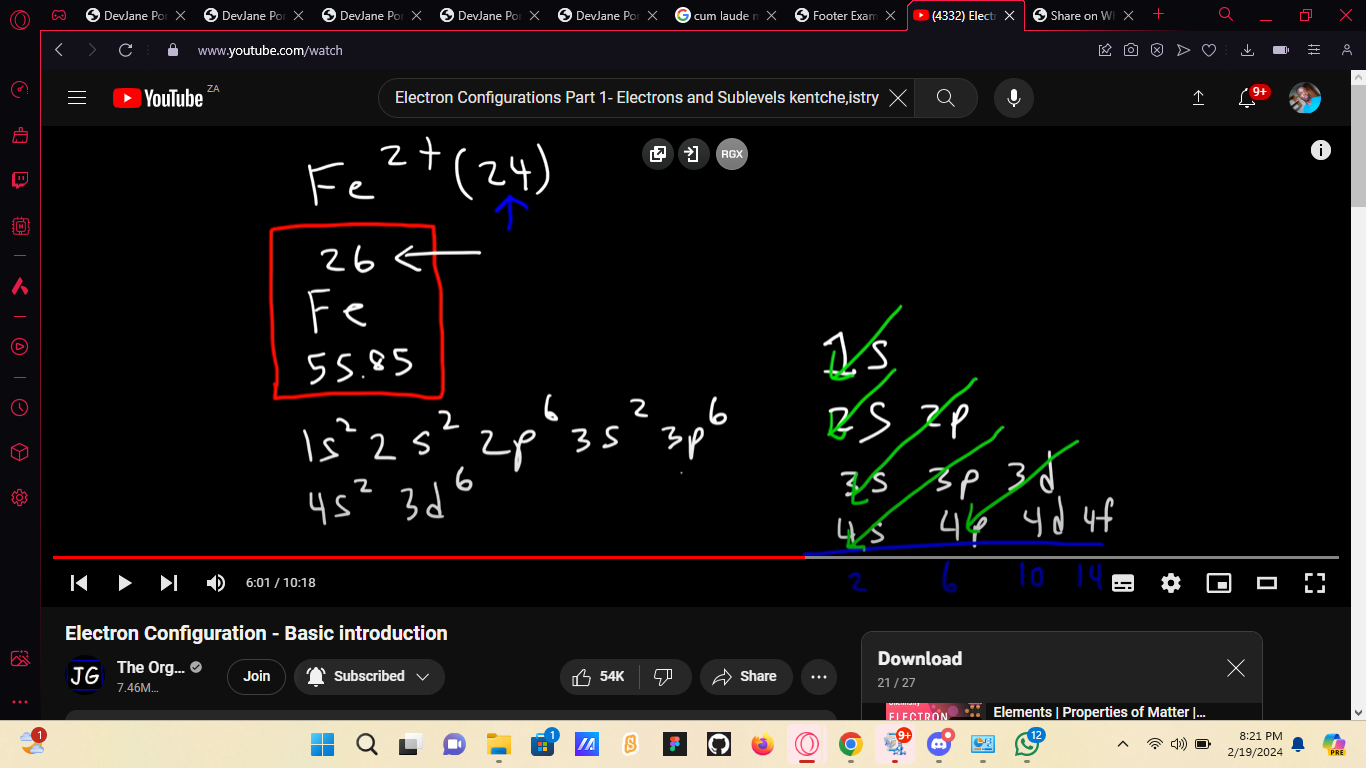 DevJane Por
DevJane Por
DevJane Por
DevJane Por
DevJane Por
cum laude n
Footer Exam
(4332) Electr
Share on Wh
www.youtube.com/watch
YouTube ZA
Electron Configurations Part 1- Electrons and Sublevels kentche,istry
9+
RGX
Fe 2+ (24)
26
Fe
55.85
1s² 2s² 2p⁶ 3s² 3p⁶
4s² 3d⁶
1s
2s 2p
3s 3p 3d
4s 4p 4d 4f
2 6 10 14
6:01 / 10:18
Electron Configuration - Basic introduction
JG
The Org...
7.46M...
Join
Subscribed
54K
Share
Download
21 / 27
ELECTRON
Elements | Properties of Matter |...
1
1
9+
12
PRE
8:21 PM
2/19/2024